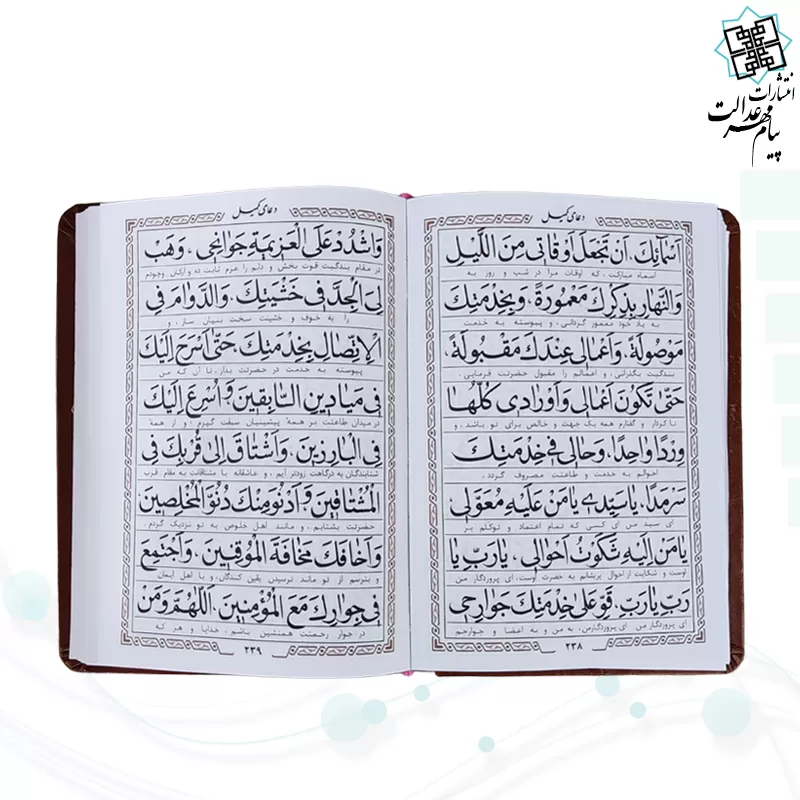 انتشارات
پیام مهر عدالت
دعای کمیل
اَسْمائِكَ، اَنْ تَجْعَلَ اَوْقاتی مِنَ اللَّیْلِ
اسماء مبارکت، که اوقات مرا در شب و روز به
وَالنَّهارِ بِذِکْرِكَ مَعْمُورَةً، وَبِخِدْمَتِكَ
به یاد خود معمور گردانی، و پیوسته به خدمت
مَوْصُولَةً، وَاَعْمالی عِنْدَكَ مَقْبُولَةً،
بندگیت بگذرانی، و اعمالم را مقبول حضرتت فرمایی،
حَتّی تَکُونَ اَعْمالی وَاَوْرادی کُلُّها
تا کردار و گفتارم همه یک جهت و خالص برای تو باشد، و
وِرْداً واحِداً، وَحالی فی خِدْمَتِكَ
احوالم به خدمت و طاعتت مصروف گردد.
سَرْمَداً، یا سَیِّدی یا مَنْ عَلَیْهِ مُعَوَّلی
ای سید من ای کسی که تمام اعتماد و توکلم بر
یا مَنْ اِلَیْهِ شَکَوْتُ اَحْوالی، یا رَبِّ یا
اوست و شکایت از احوال پریشانم به حضرت اوست، ای پروردگار من
رَبِّ یا رَبِّ، قَوِّ عَلی خِدْمَتِكَ جَوارِحی
ای پروردگار من ای پروردگارمن، به من و به اعضا و جوارحم
۲۳۸
دعای کمیل
وَاشْدُدْ عَلَی الْعَزیمَةِ جَوانِحی، وَهَبْ
در مقام بندگیت قوت بخش و دلم را عزم ثابت ده و ارکان وجودم
لِیَ الْجِدَّ فی خَشْیَتِكَ، وَالدَّوامَ فِی
را به خوف و خشیت سخت بنیان ساز، و
الْاِتِّصالِ بِخِدْمَتِكَ، حَتّی اَسْرَحَ اِلَیْكَ
پیوسته به خدمت در حضرتت بدار، تا آن که من
فی مَیادینِ السّابِقینَ وَاُسْرِعَ اِلَیْكَ
در میدان طاعتت بر همهٔ پیشینیان سبقت گیرم، و از همهٔ
فِی الْبارِزینَ، وَاَشْتاقَ اِلی قُرْبِكَ فِی
شتابندگان به درگاهت زودتر آیم، و عاشقانه با مشتاقانت به مقام قرب
الْمُشْتاقینَ وَاَدْنُوَ مِنْكَ دُنُوَّ الْمُخْلِصینَ
حضرتت بشتابم، و مانند اهل خلوص به تو نزدیک گردم،
وَاَخافَكَ مَخافَةَ الْمُوقِنینَ، وَاَجْتَمِعَ
و بترسم از تو مانند ترسیدن یقین کنندگان، و با اهل ایمان
فی جِوارِكَ مَعَ الْمُؤْمِنینَ. اَللّهُمَّ وَمَنْ
در جوار رحمتت همنشین باشم، خدایا و هر که
۲۳۹